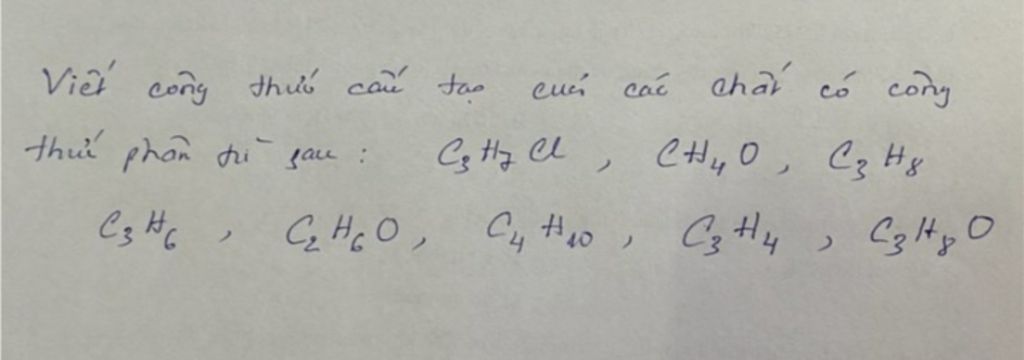 Viết công thức cấu tạo của các chất có công
thức phân tử sau : C₃H₇Cl , CH₄O , C₃H₈
C₃H₆ , C₂H₆O , C₄H₁₀ , C₃H₄ , C₃H₈O